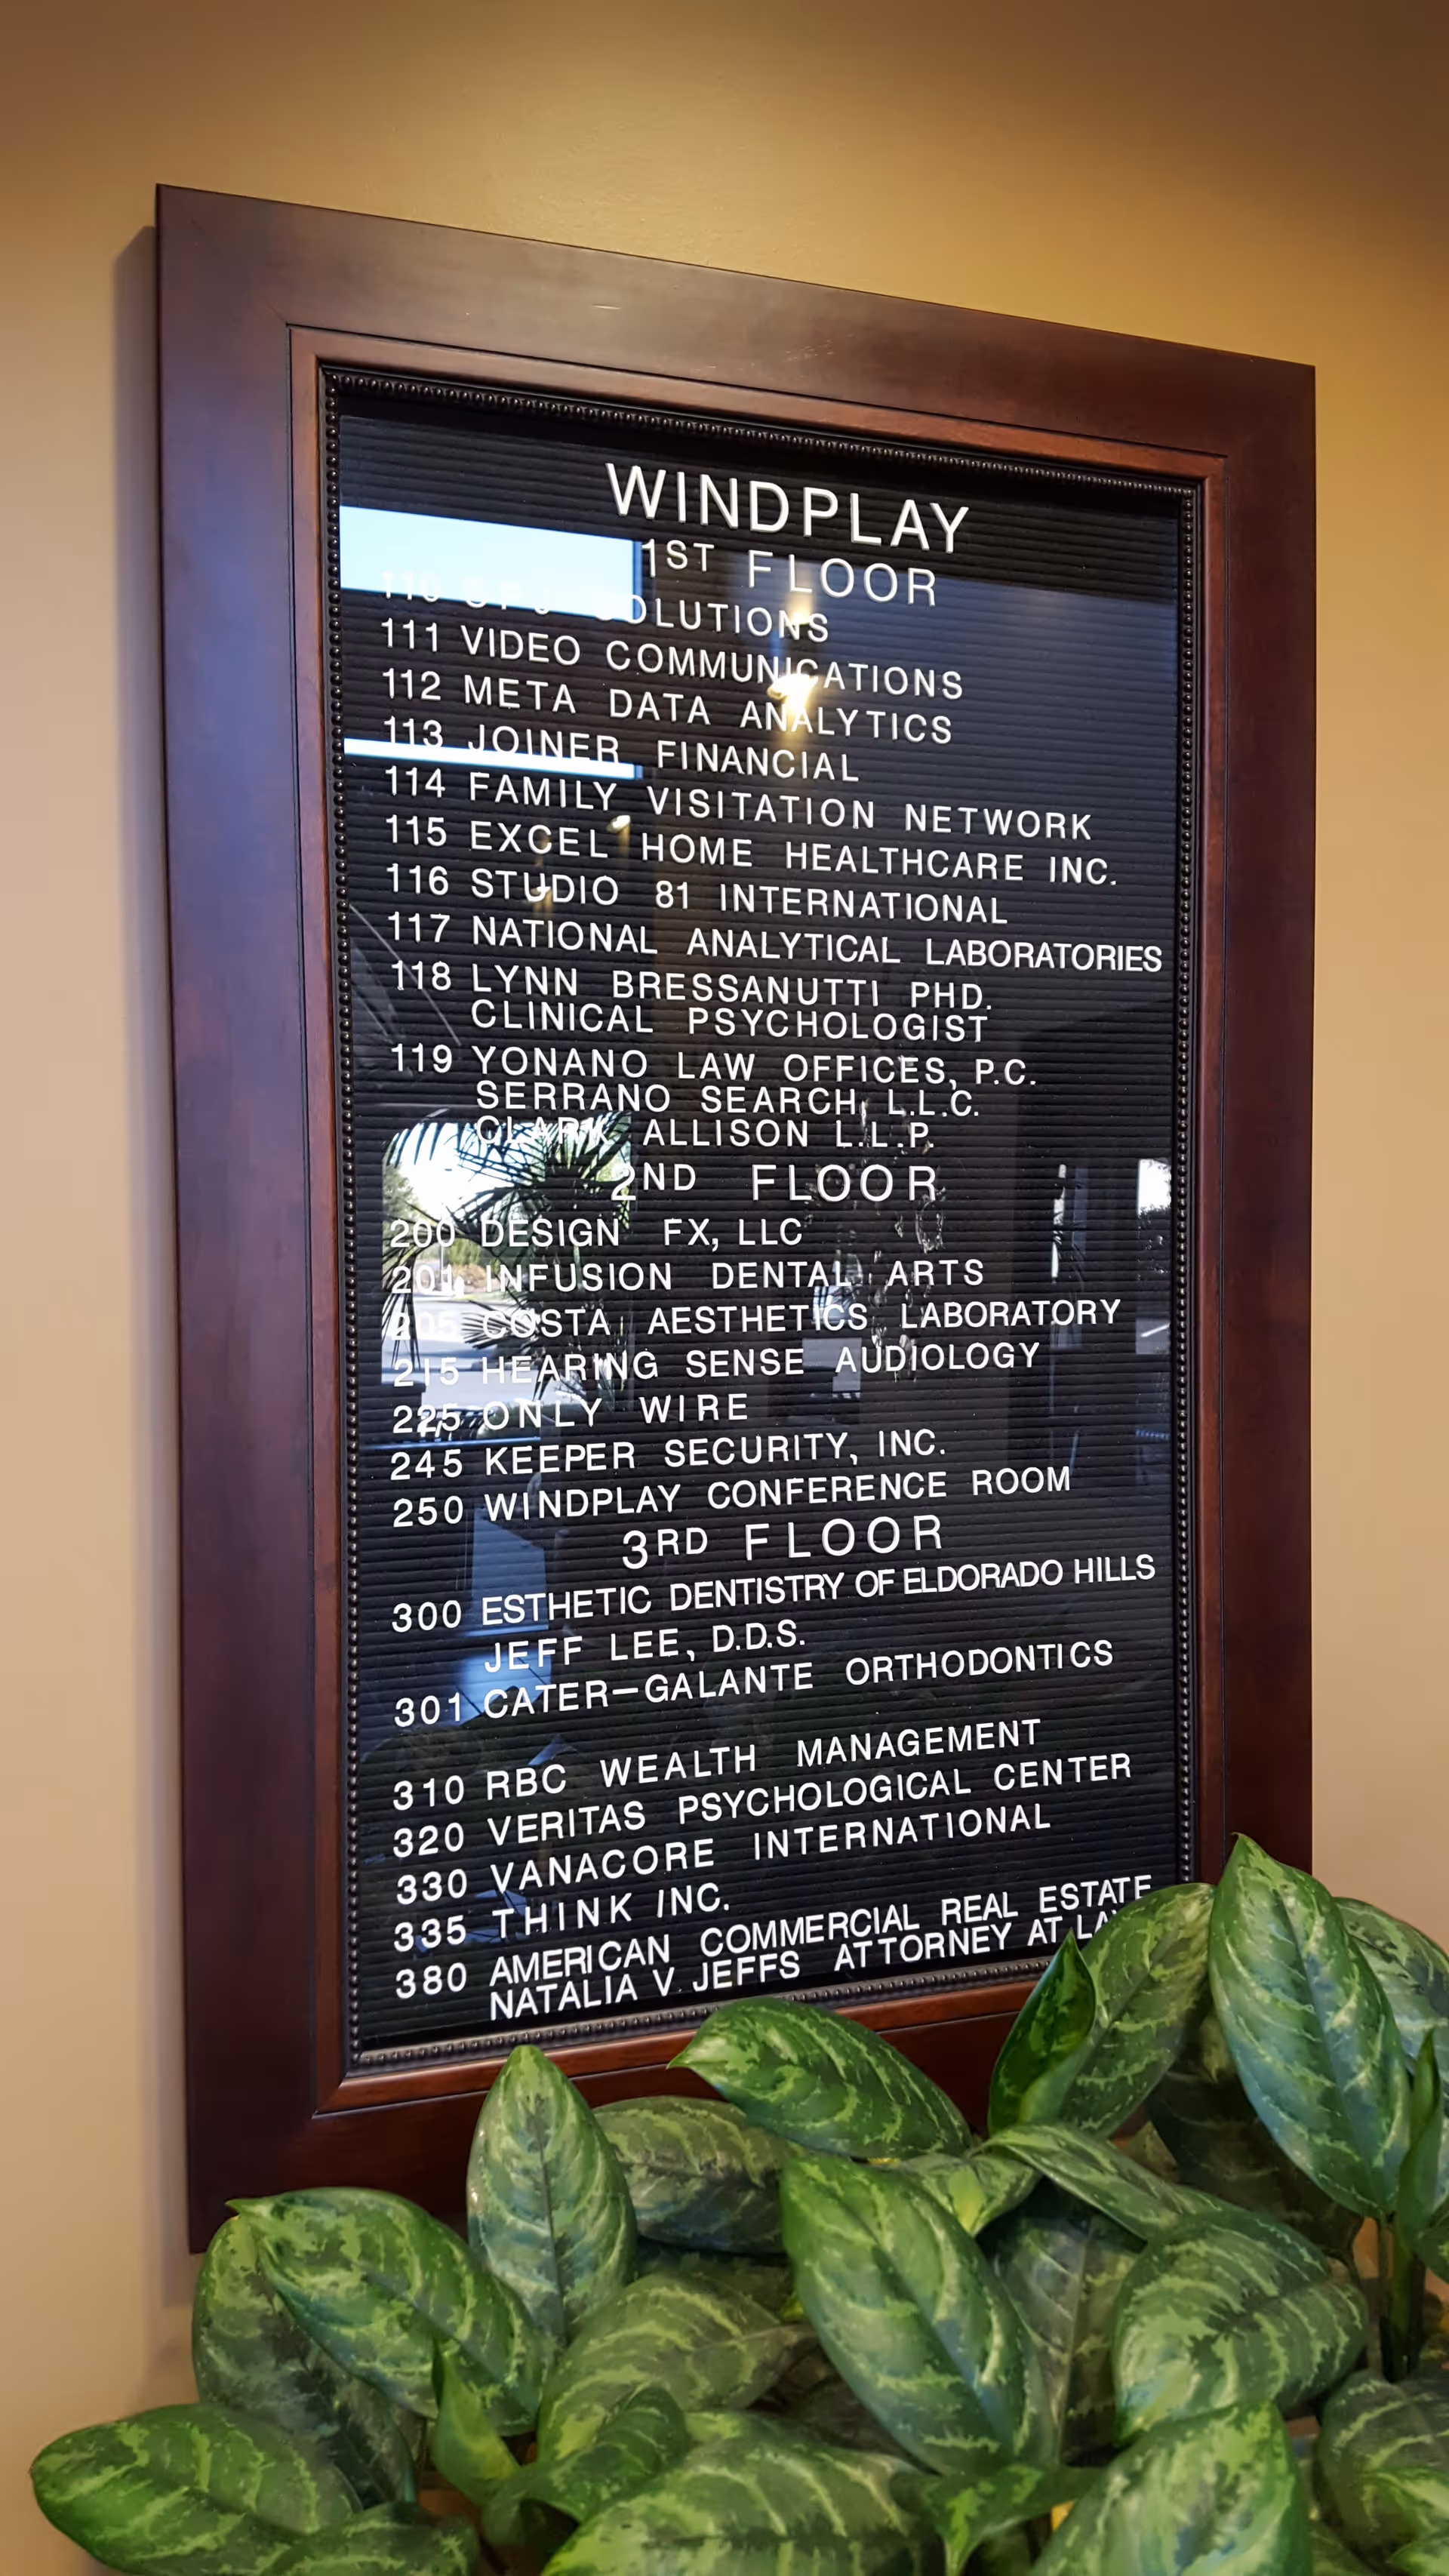 WINDPLAY
1ST FLOOR
110 SOLUTIONS
111 VIDEO COMMUNICATIONS
112 META DATA ANALYTICS
113 JOINER FINANCIAL
114 FAMILY VISITATION NETWORK
115 EXCEL HOME HEALTHCARE INC.
116 STUDIO 81 INTERNATIONAL
117 NATIONAL ANALYTICAL LABORATORIES
118 LYNN BRESSANUTTI PHD.
CLINICAL PSYCHOLOGIST
119 YONANO LAW OFFICES, P.C.
SERRANO SEARCH, L.L.C.
CLARK ALLISON L.L.P.
2ND FLOOR
200 DESIGN FX, LLC
201 INFUSION DENTAL ARTS
205 COSTA AESTHETICS LABORATORY
215 HEARING SENSE AUDIOLOGY
225 ONLY WIRE
245 KEEPER SECURITY, INC.
250 WINDPLAY CONFERENCE ROOM
3RD FLOOR
300 ESTHETIC DENTISTRY OF ELDORADO HILLS
JEFF LEE, D.D.S.
301 CATER-GALANTE ORTHODONTICS
310 RBC WEALTH MANAGEMENT
320 VERITAS PSYCHOLOGICAL CENTER
330 VANACORE INTERNATIONAL
335 THINK INC.
380 AMERICAN COMMERCIAL REAL ESTATE
NATALIA V. JEFFS ATTORNEY AT